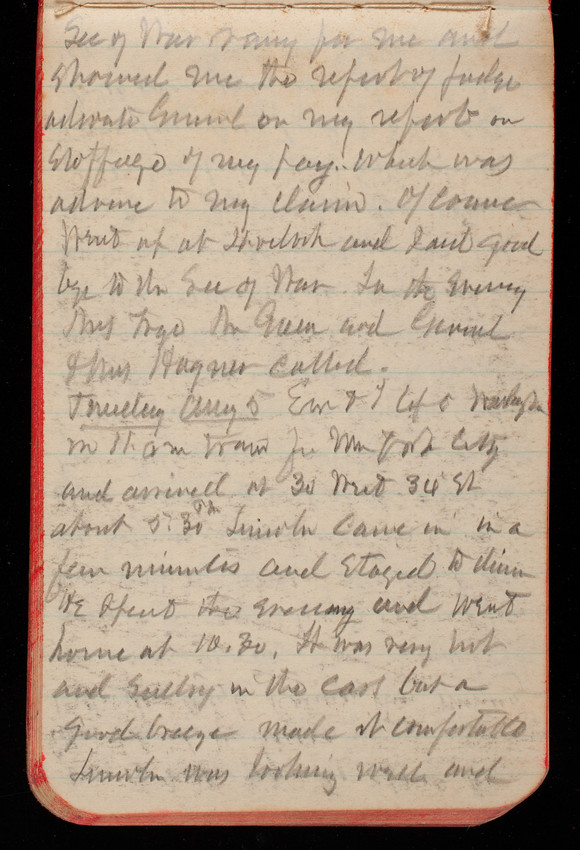 Sec of War rang for me and
showed me the report of Judge
advocate General on my report on
stoppage of my pay. which was
adverse to my claim. Of course
Went up at 4 oclock and said good
bye to the Sec of War. In the evening
Mrs Mr Green and General
& Mrs Hagner called.
Tuesday Aug 5 Em & I left Washington
on 11 am train for New York City
and arrived at 30 West 34 St
about 5:30 PM Lincoln came in in a
few minutes and stayed to dinner
He spent the evening and went
home at 10.30. It was very hot
and sultry in the cars but a
good breeze made it comfortable
Lincoln was looking well and